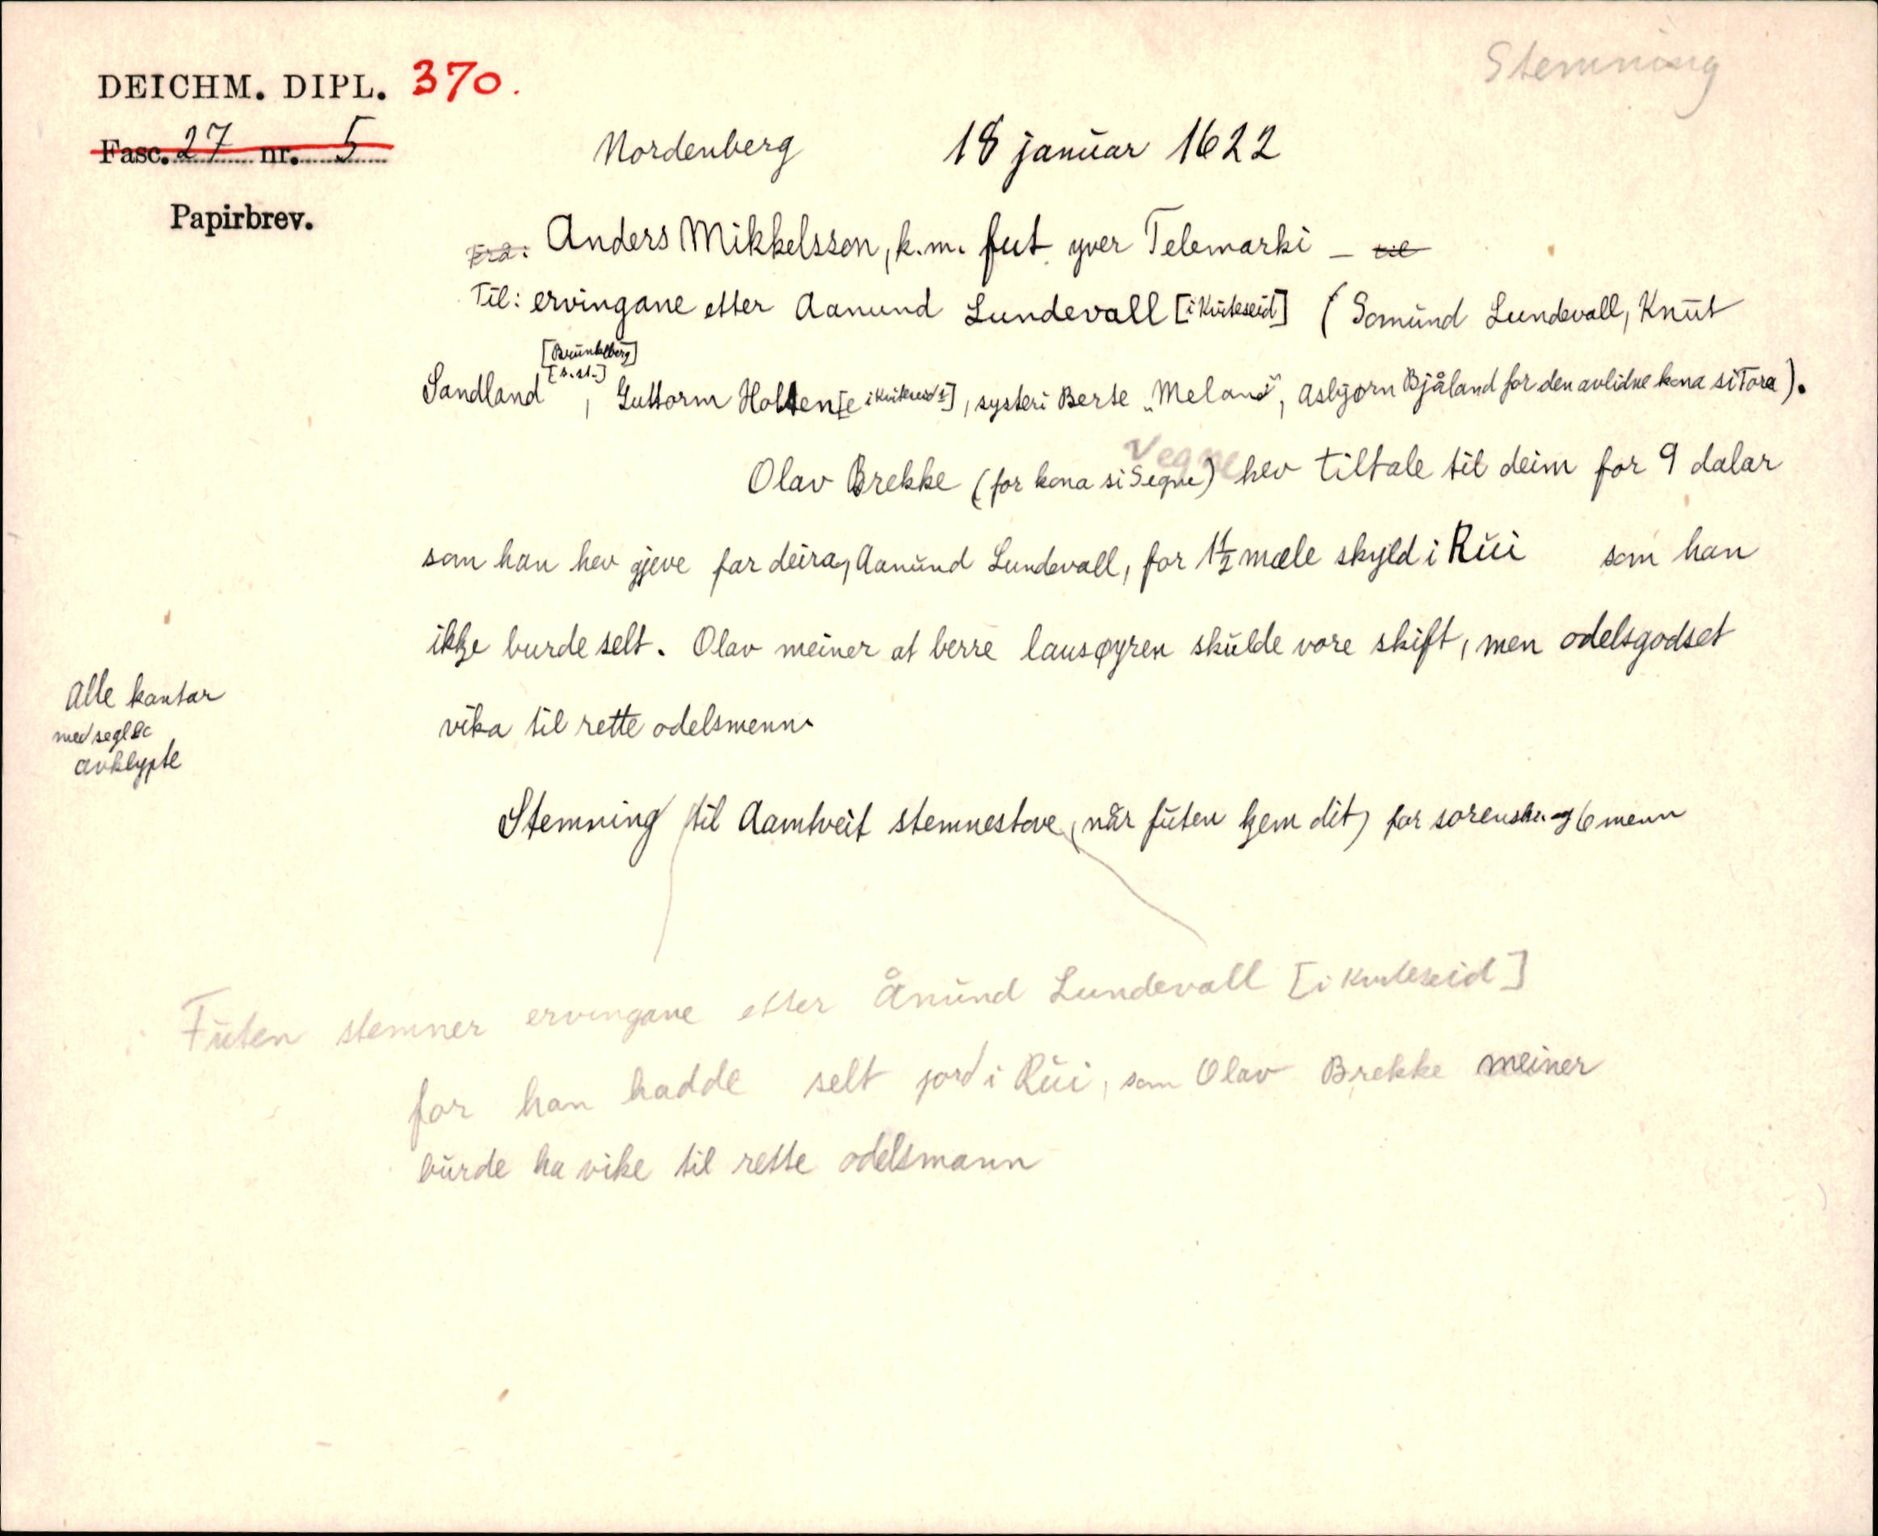 Stemning
DEICHM. DIPL. 370.
Fasc. 27 nr. 5
Papirbrev.
Nordenberg 18 januar 1622
Frå: Anders Mikkelsson, k.m. fut yver Telemarki - til
Til: ervingane etter Aanund Lundevall [i Kviteseid] (Gomund Lundevall, Knut
[Brunkeberg]
[s.st.]
Sandland, Guttorm Holten [i Kviteseid], systeri Berte "Meland", Asbjørn Bjåland for den avlidne kona si Tora).
Vegne
Olav Brekke (for kona si Segne) hev tiltale til deim for 9 dalar
som han hev gjeve far deira, Aanund Lundevall, for 1½ mæle skyld i Rui som han
ikkje burde selt. Olav meiner at berre lausøyren skulde vore skift, men odelsgodset
vika til rette odelsmenn.
Alle kantar
med segl &c
avklypte
Stemning til Aamtveit stemnestove, når futen kjem dit, for sorenskr. og 6 menn
Futen stemner ervingane etter Ånund Lundevall [i Kviteseid]
for han hadde selt jord i Rui, som Olav Brekke meiner
burde ha vike til rette odelsmann